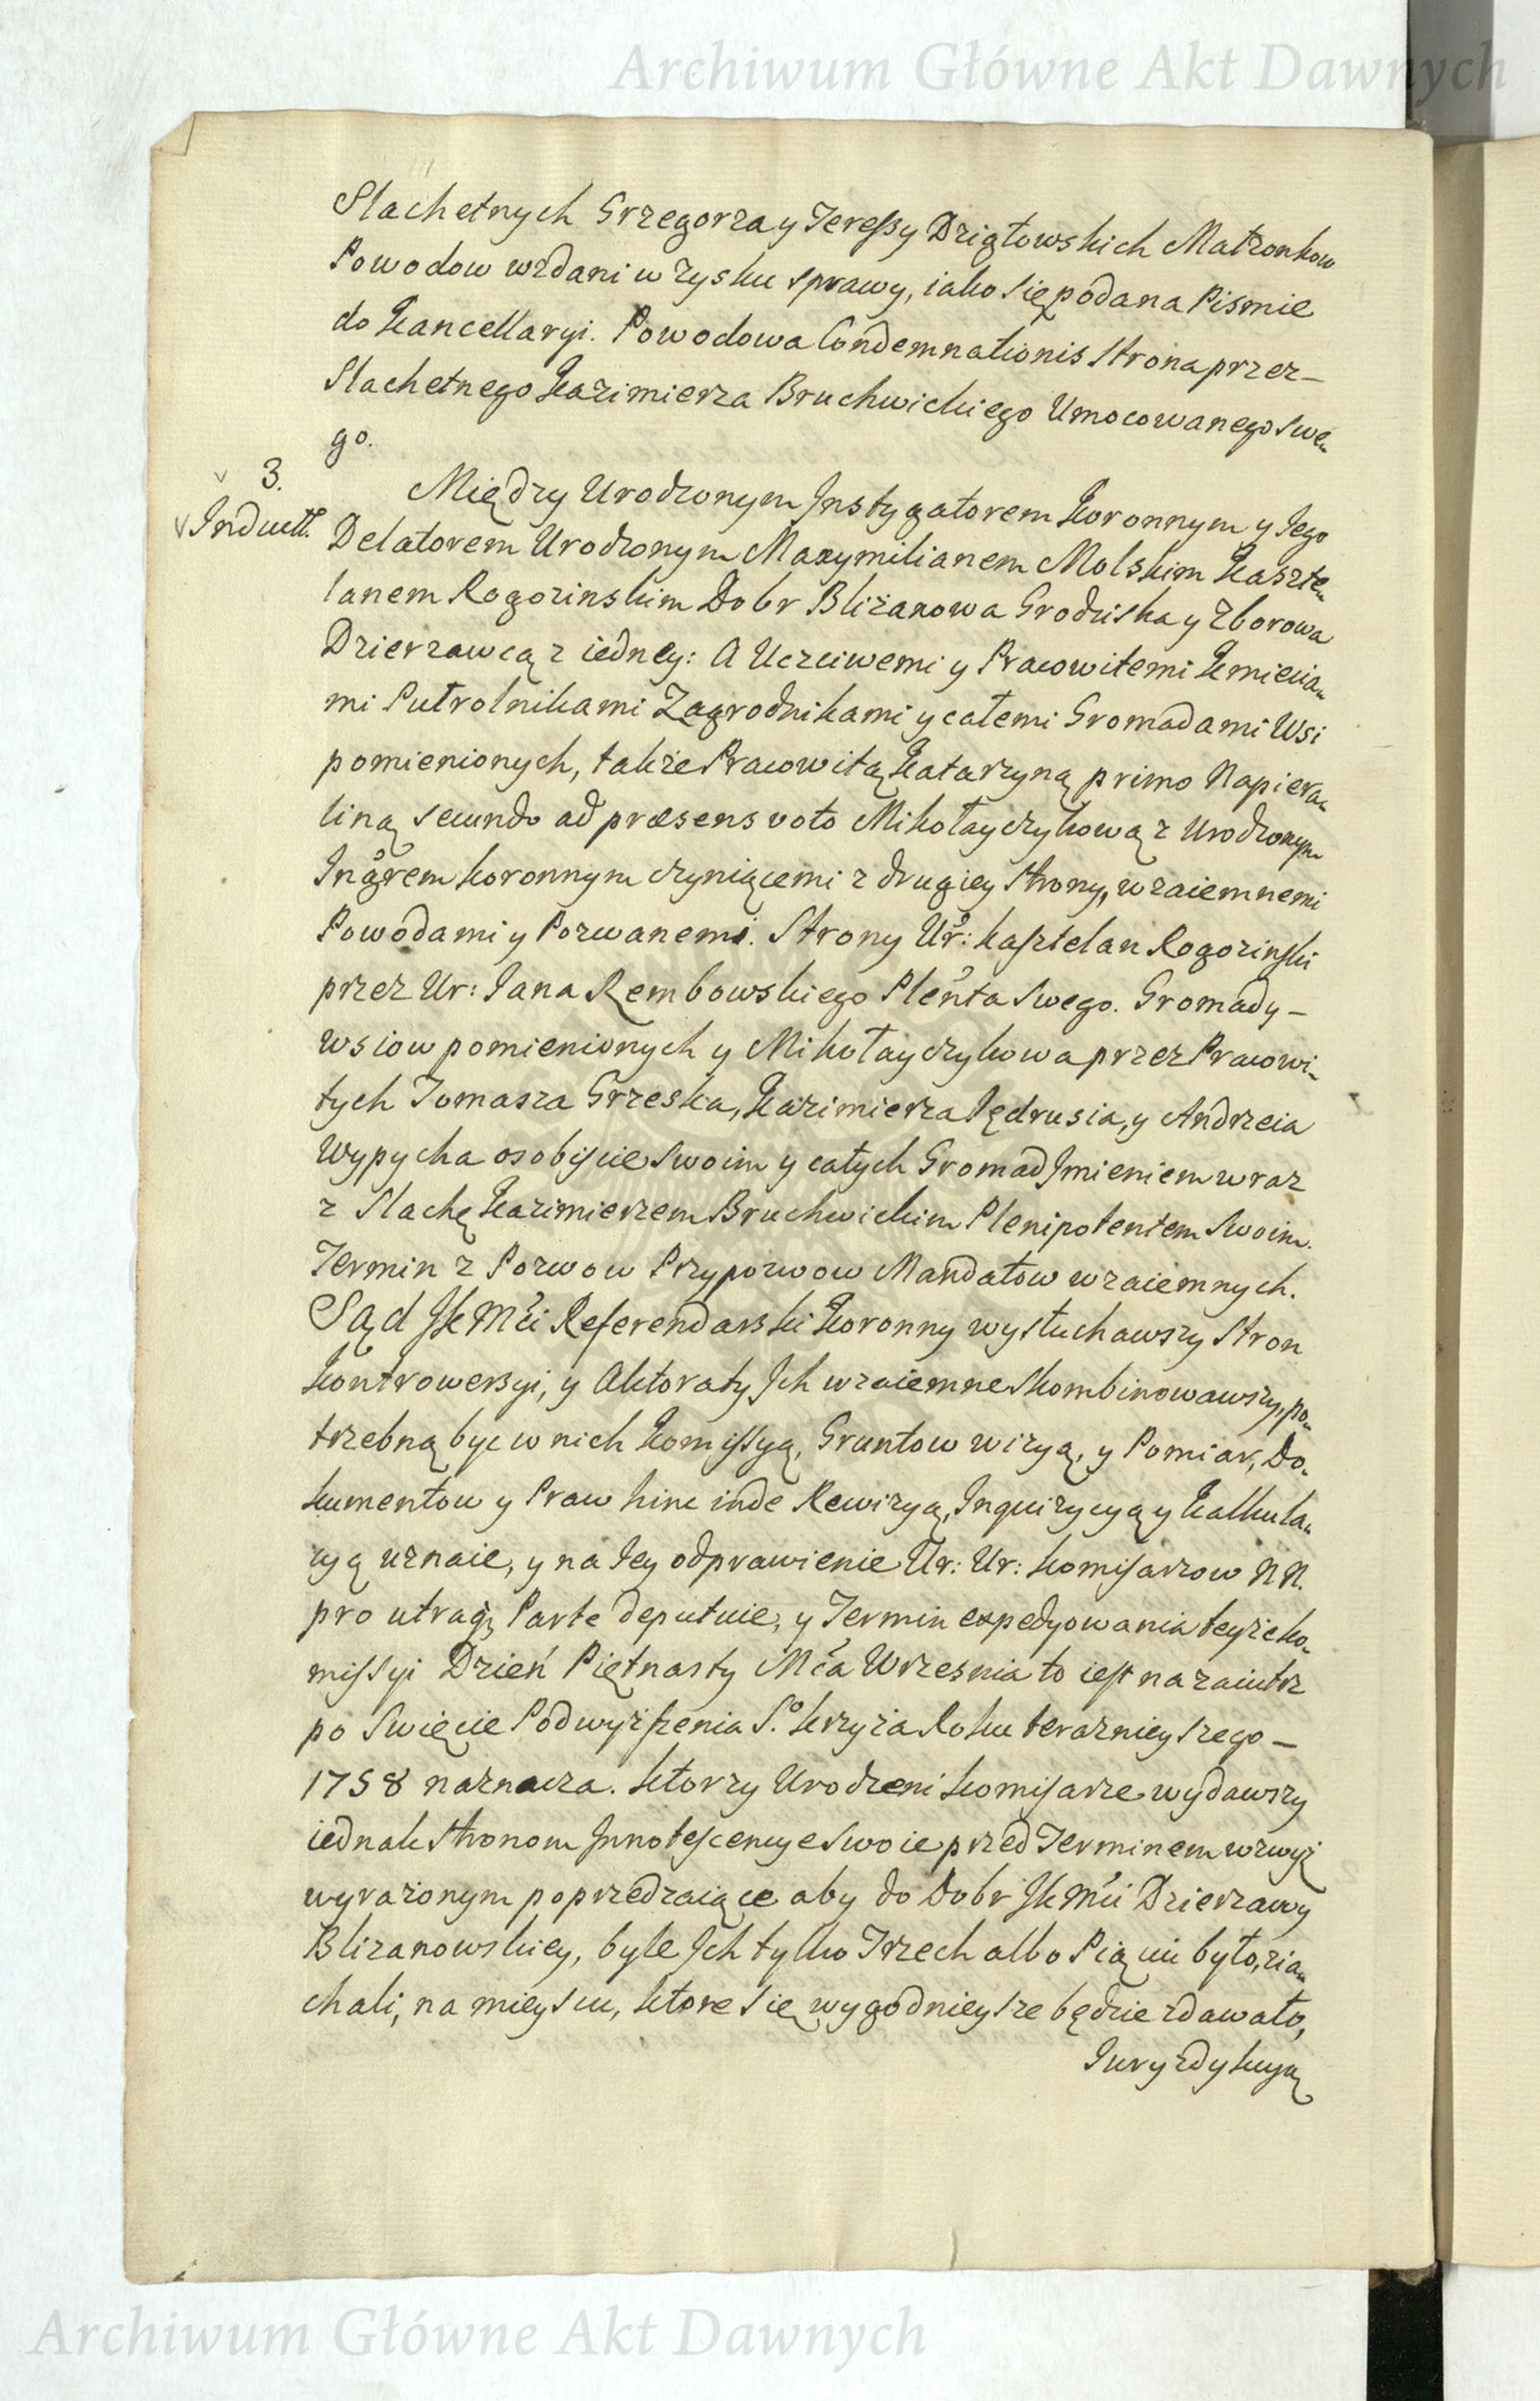 Archiwum Główne Akt Dawnych
Slachetnych Grzegorza y Teressy Dziątowskich Małzonkow
Powodow wzdani w zysku sprawy, iako się poda na Pismie
do Kancellaryi. Powodowa Condemnationis strona przez –
Slachetnego Kazimierza Bruchwickiego Umocowanego swe-
go.
3.
Indukt.
Między Urodzonym Instygatorem Koronnym y Jego
Delatorem Urodzonym Maxymilianem Molskim Kaszte-
lanem Rogozinskim Dobr Bliżanowa Grodziska y Zborowa
Dzierzawcą z iedney: A Uczciwemi y Pracowitemi Kmiecia-
mi Pułrolnikami Zagrodnikami y całemi Gromadami Wsi
pomienionych, takze Pracowitą Katarzyną primo Napiera-
liną secundo ad præsens voto Mikołayczykową z Urodzonym
Ingrem koronnym czyniącemi z drugiey strony, wzaiemnemi
Powodami y Pozwanemi. Strony Ur: kasztelan Rogozinski
przez Ur: Jana Rembowskiego Plenta swego. Gromady –
wsiow pomienionych y Mikołayczykowa przez Pracowi-
tych Tomasza Grzeska, Kazimierza Jędrusia, y Andrzeia
Wypycha osobiscie swoim y całych Gromad Imieniem wraz
z Slachę Kazimierzem Bruchwickim Plenipotentem swoim.
Termin z Pozwow Przypozwow Mandatow wzaiemnych.
Sąd JKMci Referendarski Koronny wysłuchawszy stron
kontrowersyi, y Aktoraty Ich wzaiemne skombinowawszy, po-
trzebną byc w nich Komissyą, Gruntow wizyą, y Pomiar, Do-
kumentow y Praw hinc inde Rewizyą, Inquizycyą y Kalkula-
cyą uznaie, y na Jey odprawienie Ur: Ur: komisarzow NN.
pro utraq Parte deputuie, y Termin expedyowania teyze ko-
missyi Dzień Piętnasty Mca Wrzesnia to iest nazaiutrz
po Swięcie Podwyższenia S.o krzyża Roku terazniey szego –
1758 naznacza. którzy Urodzeni komisarze wydawszy
iednak stronom Innotescencye swoie przed Terminem wzwyż
wyrazonym poprzedzaiące aby do Dobr JKMci Dzierzawy
Blizanowskiey, byle Ich tylko Trzech albo Piąciu było, zia-
chali, na mieyscu, które się wygodnieysze będzie zdawało,
Juryzdykcyą
Archiwum Główne Akt Dawnych